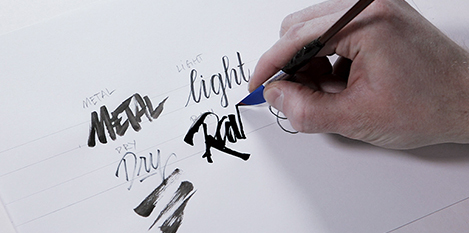 METAL
METAL
LIGHT
light
DRY
Dry